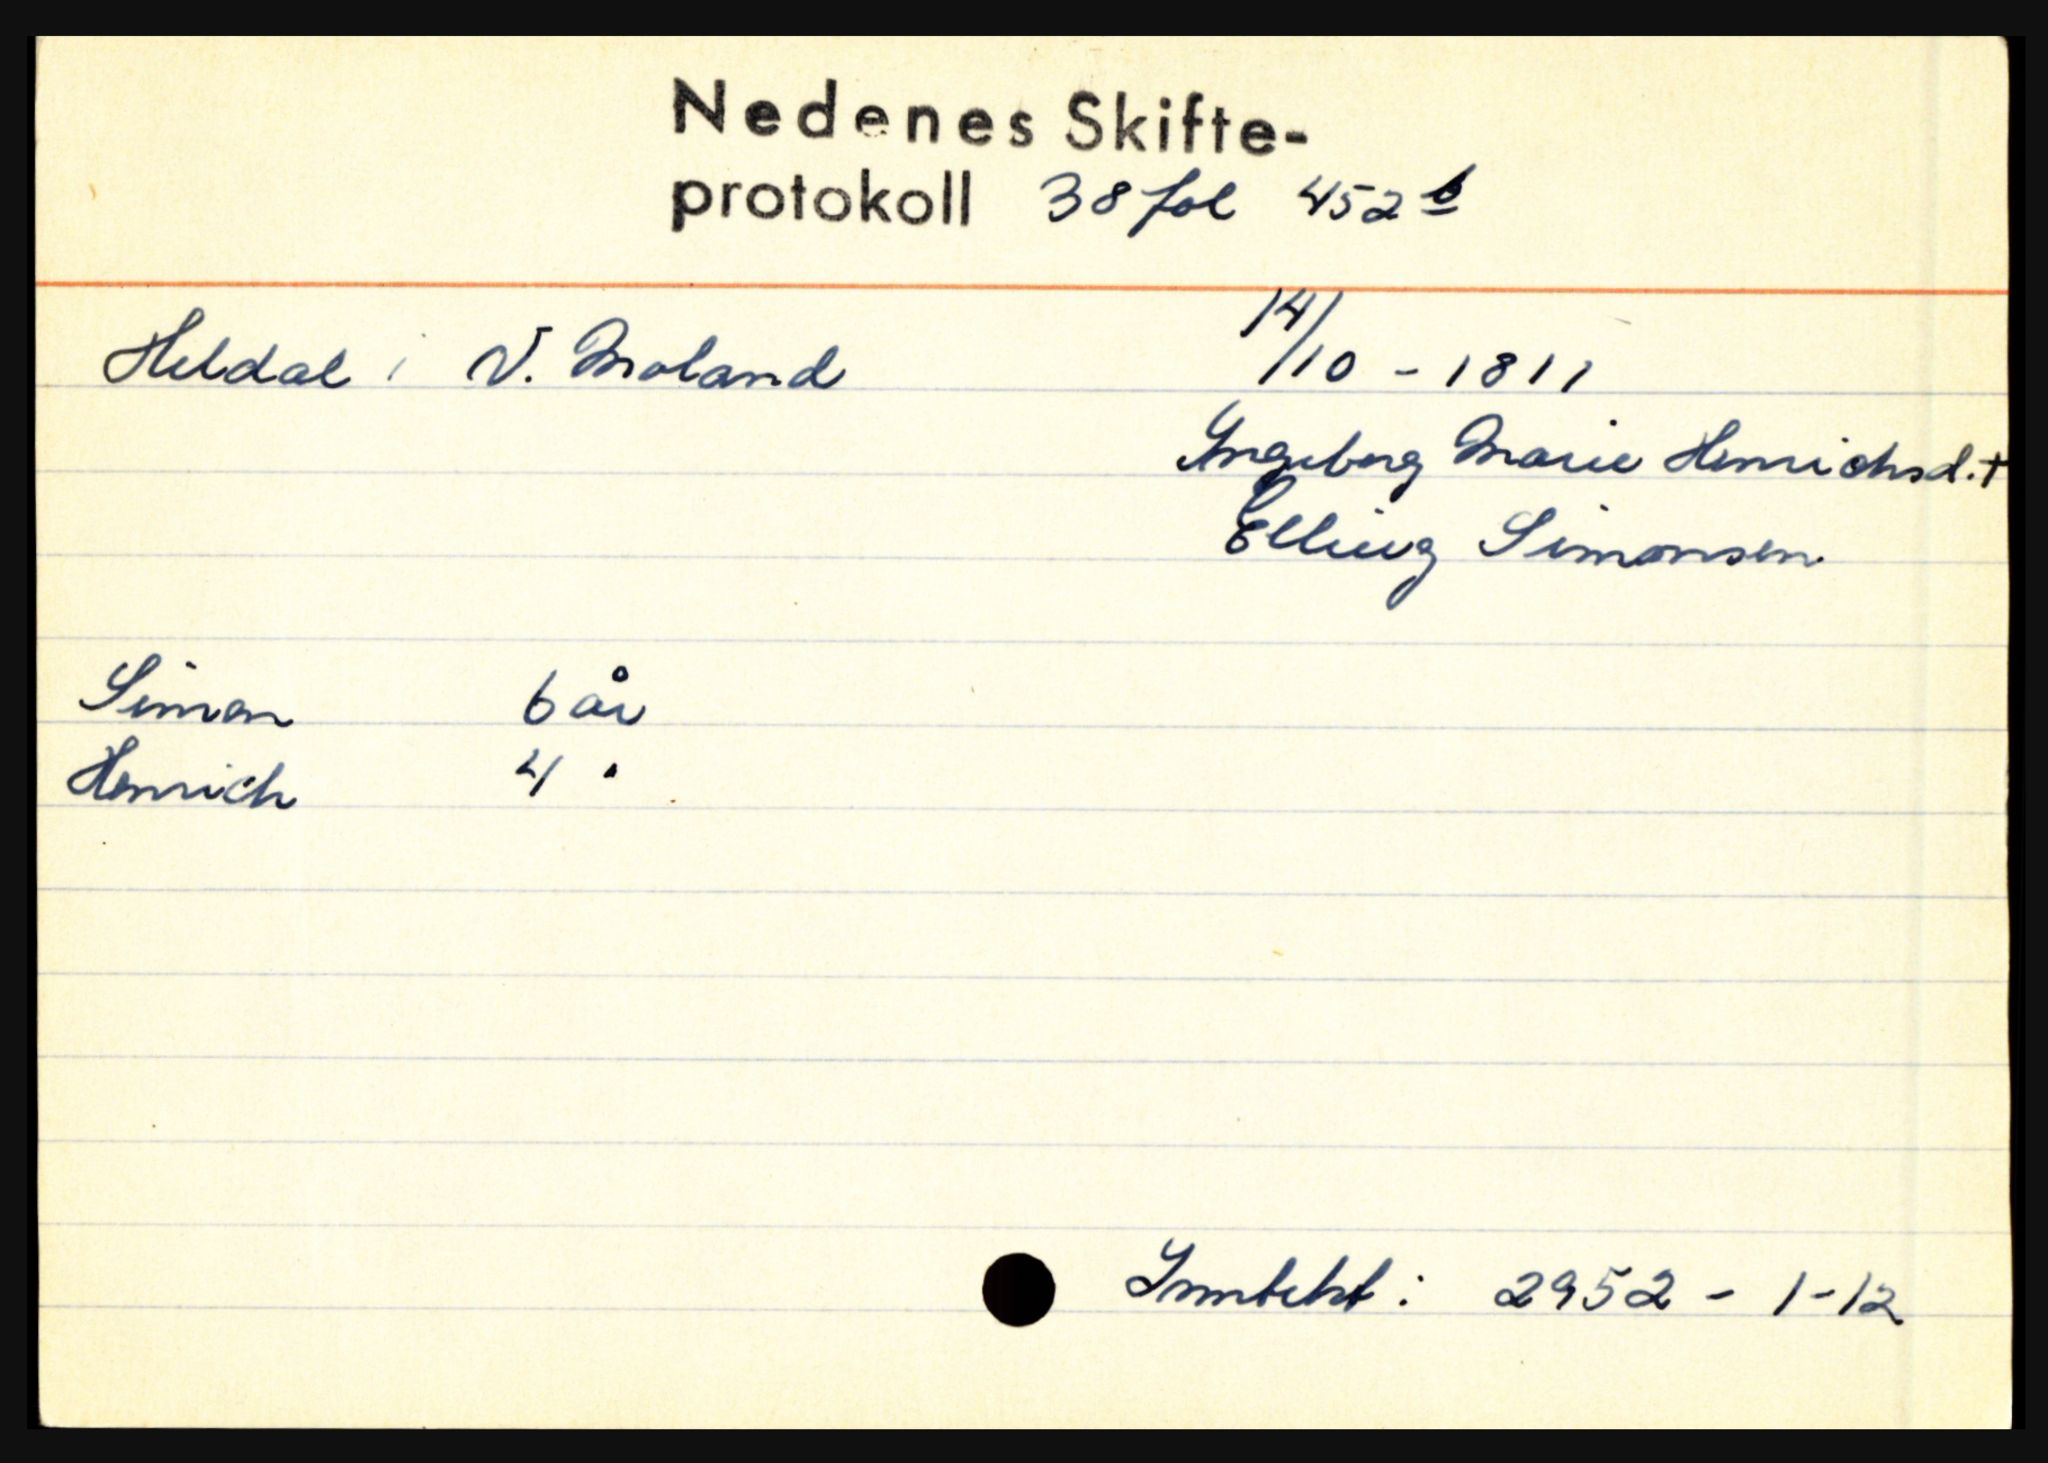 Nedenes Skifte-
protokoll 38 fol 452 b
Heldal i V. Moland 14/10 - 1811
Ingeborg Marie Henrichsd. †
Elling Simonsen
Simon 6 år
Henrich 4 "
Inntekt: 2952 - 1 - 12